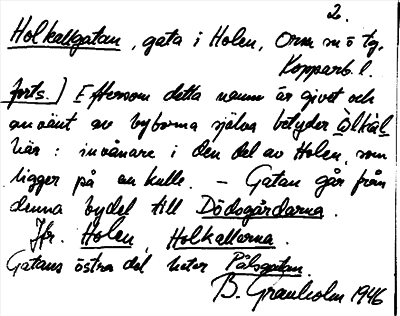 2.
Holkallgatan, gata i Holen, Orsa m ö tg,
Kopparb. l.
forts.) Eftersom detta namn är givet och
använt av byborna själva betyder
här: invånare i den del av Holen, som
ligger på en kulle. – Gatan går från
denna bydel till Dödsgårdarna.
Jfr. Holen, Holkallarna.
Gatans östra del heter Pålsgatan.
B. Granholm 1946